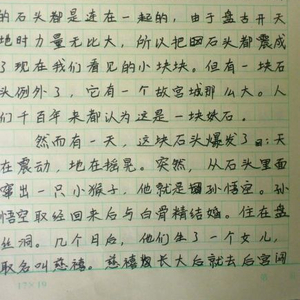 的石头都是连在一起的，由于盘古开天
地时力量无比大，所以把石头都震成
了现在我们看见的小块块。但有一块石
头例外了，它有一个故宫城那么大。人
们千百年来都认为这是一块妖石。
然而有一天，这块石头爆发了：天
在震动，地在摇晃。突然，从石头里面
窜出一只小猴子，他就是孙悟空。孙
悟空取经回来后与白骨精结婚。住在盘
丝洞。几个月后，他们生了一个女儿，
取名叫慈禧。慈禧长大后就去后宫闹
17×18